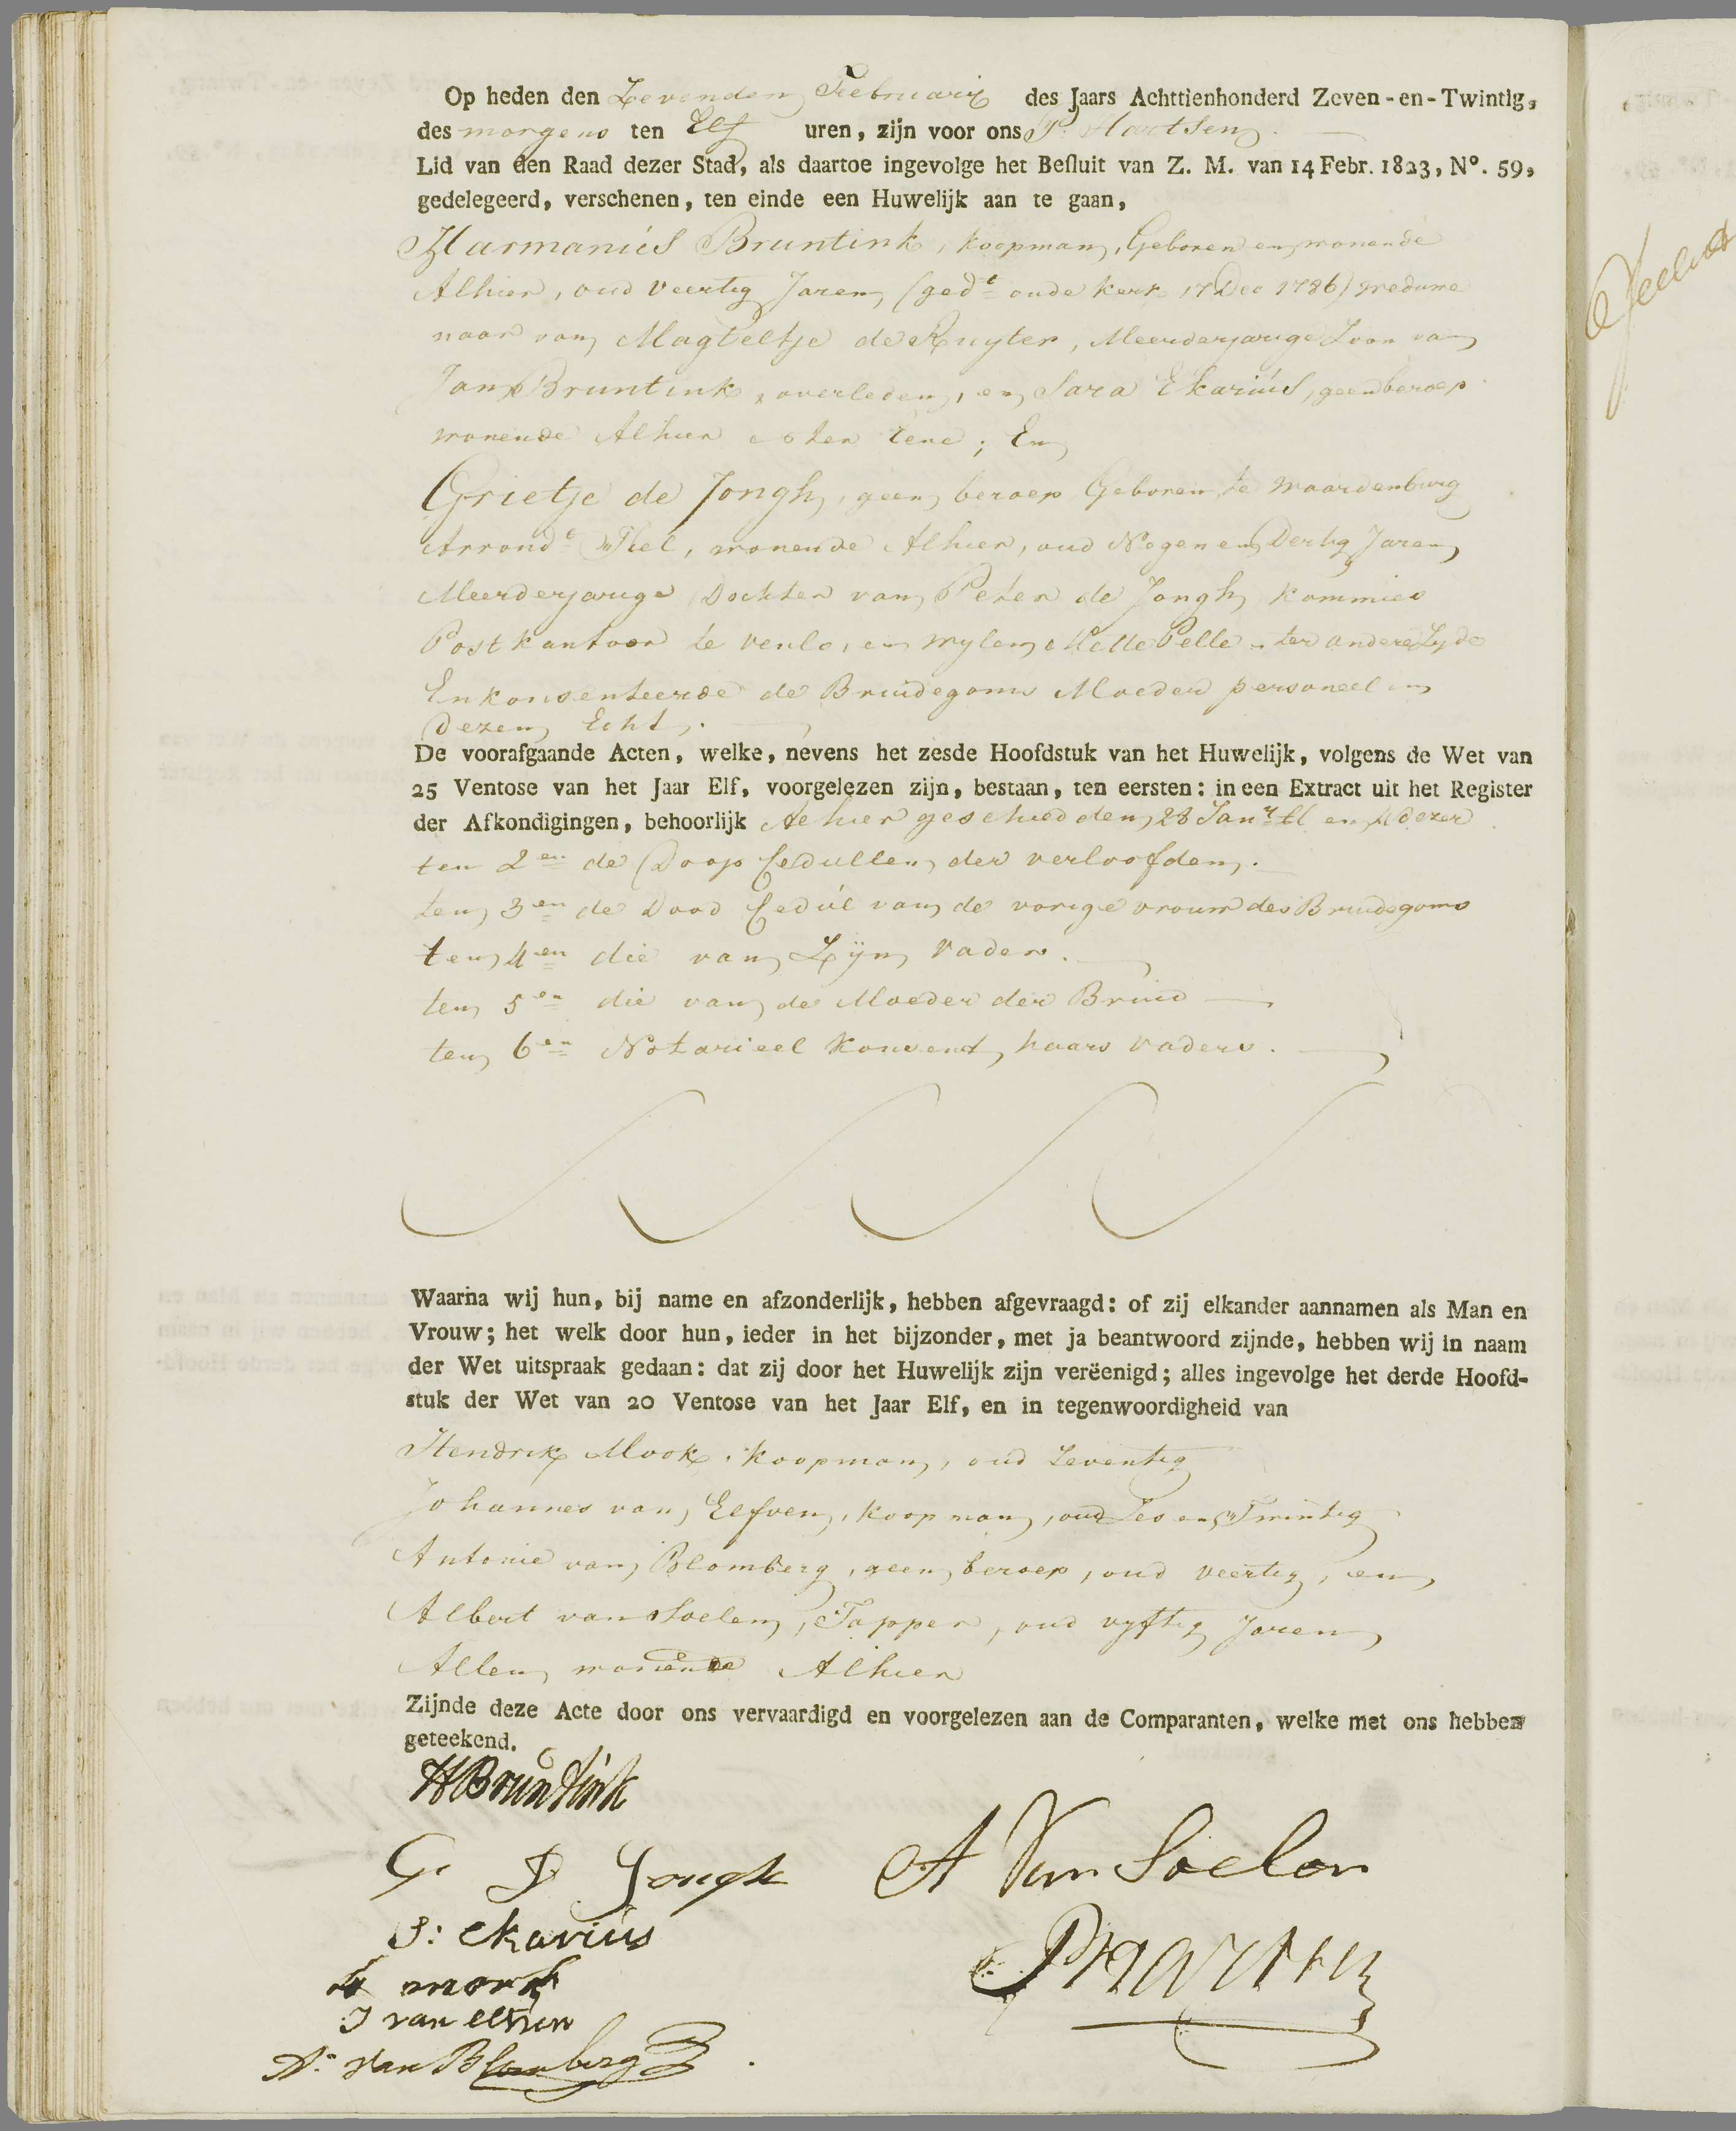 Op heden den Zevenden Februarij des Jaars Achttienhonderd Zeven-en-Twintig,
des morgens ten Elf uren, zijn voor ons P. Haartsen
Lid van den Raad dezer Stad, als daartoe ingevolge het Befluit van Z. M. van 14 Febr. 1823, Nº. 59,
gedelegeerd, verschenen, ten einde een Huwelijk aan te gaan,
Harmanús Bruntink, koopman, Geboren en wonende
Alhier, oud veertig Jaren, (gedt oude kerk 17 Dec 1786) weduwe
naar van Magteltje de Ruyter, Meerderjarige Zoon van
Jan Bruntink, overleden, en Sara Ekariús, geen beroep
wonende Alhier ter Eene; En
Grietje de Jongh, geen beroep Geboren te Waardenburg
Arrondt Thiel, wonende Alhier, oud Negen en Dertig Jaren
Meerderjarige Dochter van Peter de Jongh kommies
Postkantoor te venlo, en wylen Mette Pelle - ter andere Zyde
En konsenteerde de Bruidegoms Moeder personeel in
dezen Echt.
De voorafgaande Acten, welke, nevens het zesde Hoofdstuk van het Huwelijk, volgens de Wet van
25 Ventose van het Jaar Elf, voorgelezen zijn, bestaan, ten eersten: in een Extract uit het Register
der Afkondigingen, behoorlijk Alhier geschied den 28 Janr ll en 4 dezer
ten 2en de Doop Cedullen der verloofden.
ten 3en de Dood Cedúl van de vorige vrouw des Bruidegoms
ten 4en die van Zijn Vader.
ten 5en die van de Moeder der Bruid
ten 6en Notarieel Konsent haars vaders.
Waarna wij hun, bij name en afzonderlijk, hebben afgevraagd: of zij elkander aannamen als Man en
Vrouw; het welk door hun, ieder in het bijzonder, met ja beantwoord zijnde, hebben wij in naam
der Wet uitspraak gedaan: dat zij door het Huwelijk zijn verëenigd; alles ingevolge het derde Hoofd-
stuk der Wet van 20 Ventose van het Jaar Elf, en in tegenwoordigheid van
Hendrik Mook, koopman, oud Zeventig
Johannes van Elfven, koopman, oud Zes en Twintig
Antonie van Blomberg, geen beroep, oud veertig, en
Albert van Soelen, Tapper, oud vyftig Jaren
Allen wonende Alhier
Zijnde deze Acte door ons vervaardigd en voorgelezen aan de Comparanten, welke met ons hebben
geteekend.
H Bruntink
G D Jongh
A Van Soelen
S: ekariús
P Haartsen
H mook
J van elfven
A: van Blomberg